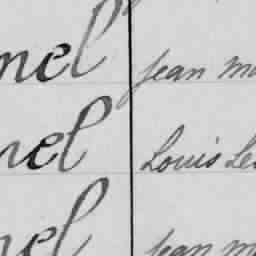 nel Jean M
nel Louis Le
nel Jean M